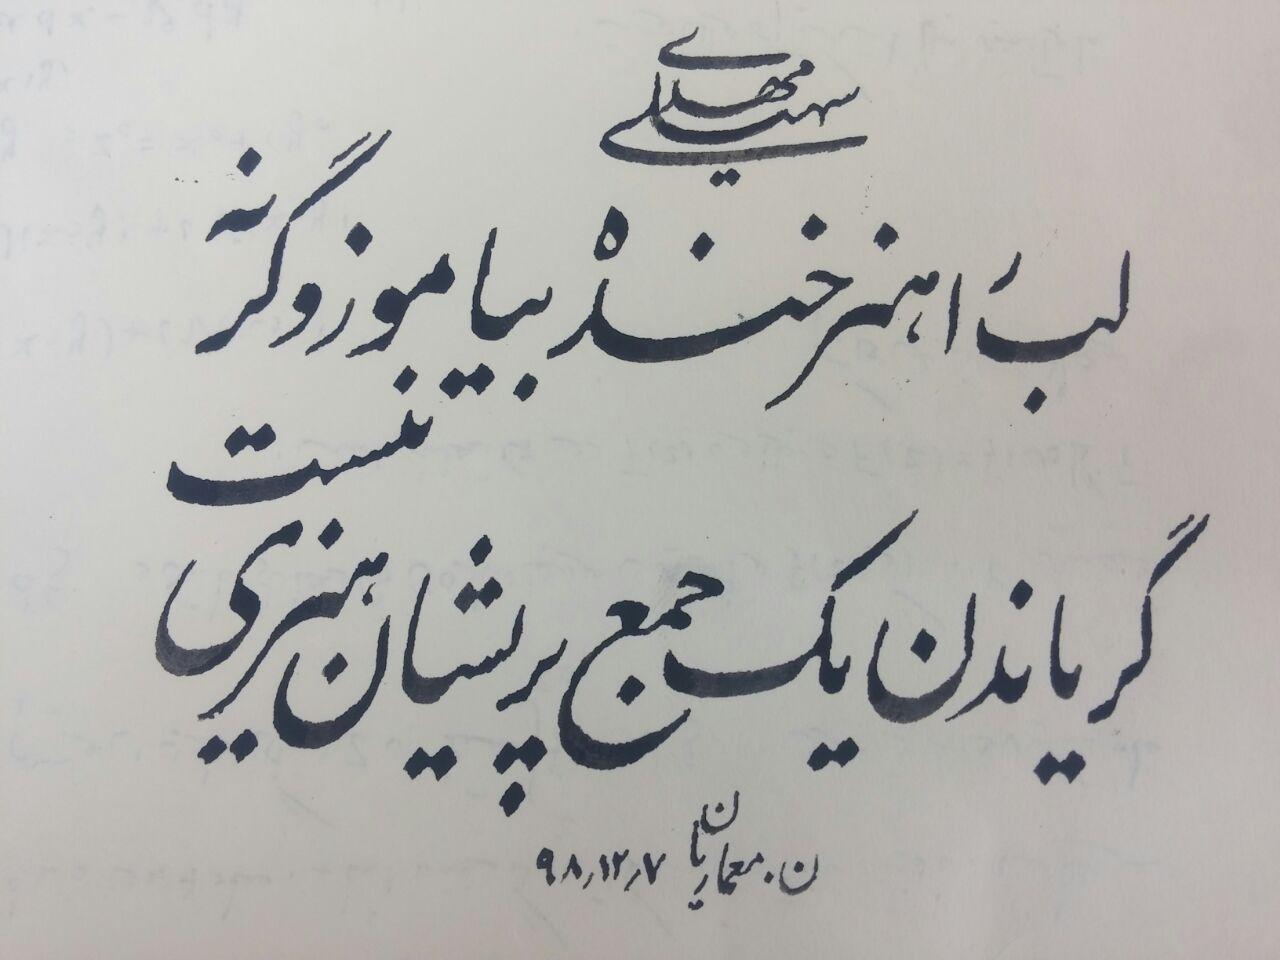 مهدی
سهیلی
لب را هنر خنده بیاموز وگرنه
گریاندن یک جمع پریشان هنری نیست
ن. معماریان
۹۸٫۱۲٫۷